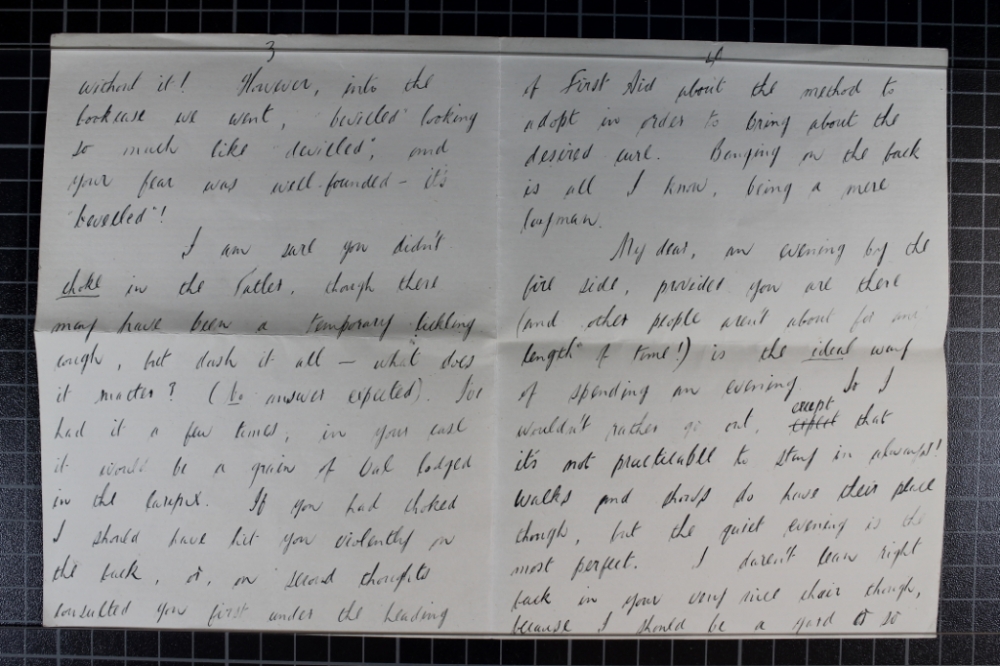 3
without it! However, into the
bookcase we went, "bevelled" looking
so much like "devilled", and
your fear was well-founded - it's
"bevelled"!
I am sure you didn't
choke in the Tatler, though there
may have been a temporary tickling
cough, but dash it all - what does
it matter? (No answer expected). I've
had it a few times, in your case
it would be a grain of lodged
in the larynx. If you had choked
I should have hit you violently on
the back, or, on second thoughts
consulted you first under the heading
4
of First Aid about the method to
adopt in order to bring about the
desired cure. Banging on the back
is all I know, being a mere
layman.
My dear, an evening by the
fire side, provided you are there
(and other people aren't about for any
"length" of time!) is the ideal way
of spending an evening. So I
wouldn't rather go out, except that
it's not practicable to stay in always!
Walks and shows do have their place
though, but the quiet evening is the
most perfect. I daren't lean right
back in your very nice chair though,
because I should be a yard or so